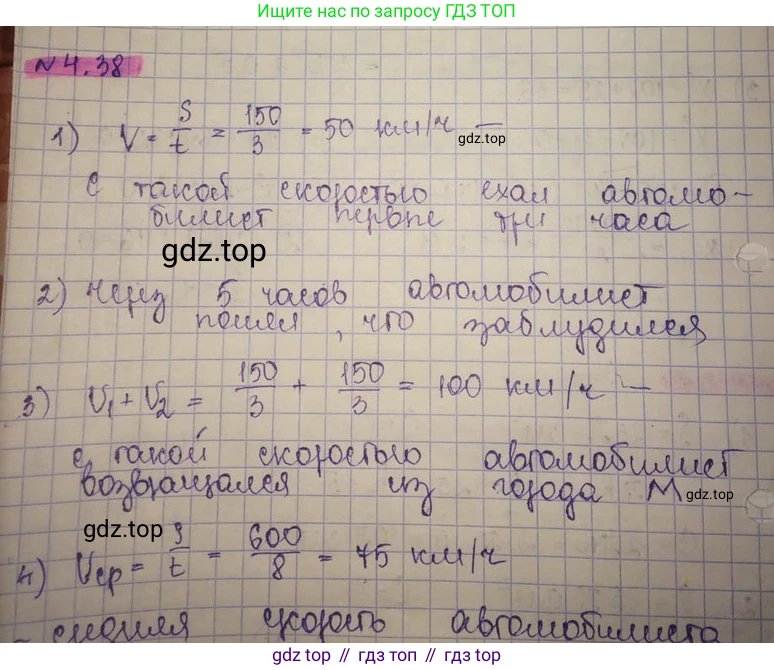 Ищите нас по запросу ГДЗ ТОП
№ 4.38
1) V = S/t = 150/3 = 50 км/ч —
gdz.top
с такой скоростью ехал автомо-
билист первые три часа
gdz.top
2) Через 5 часов автомобилист
понял, что заблудился
3) V₁ + V₂ = 150/3 + 150/3 = 100 км/ч —
с такой скоростью автомобилист
возвращался из города М
gdz.top
gdz.top
4) Vср = S/t = 600/8 = 75 км/ч
- средняя скорость автомобилиста
gdz.top // гдз топ // gdz.top